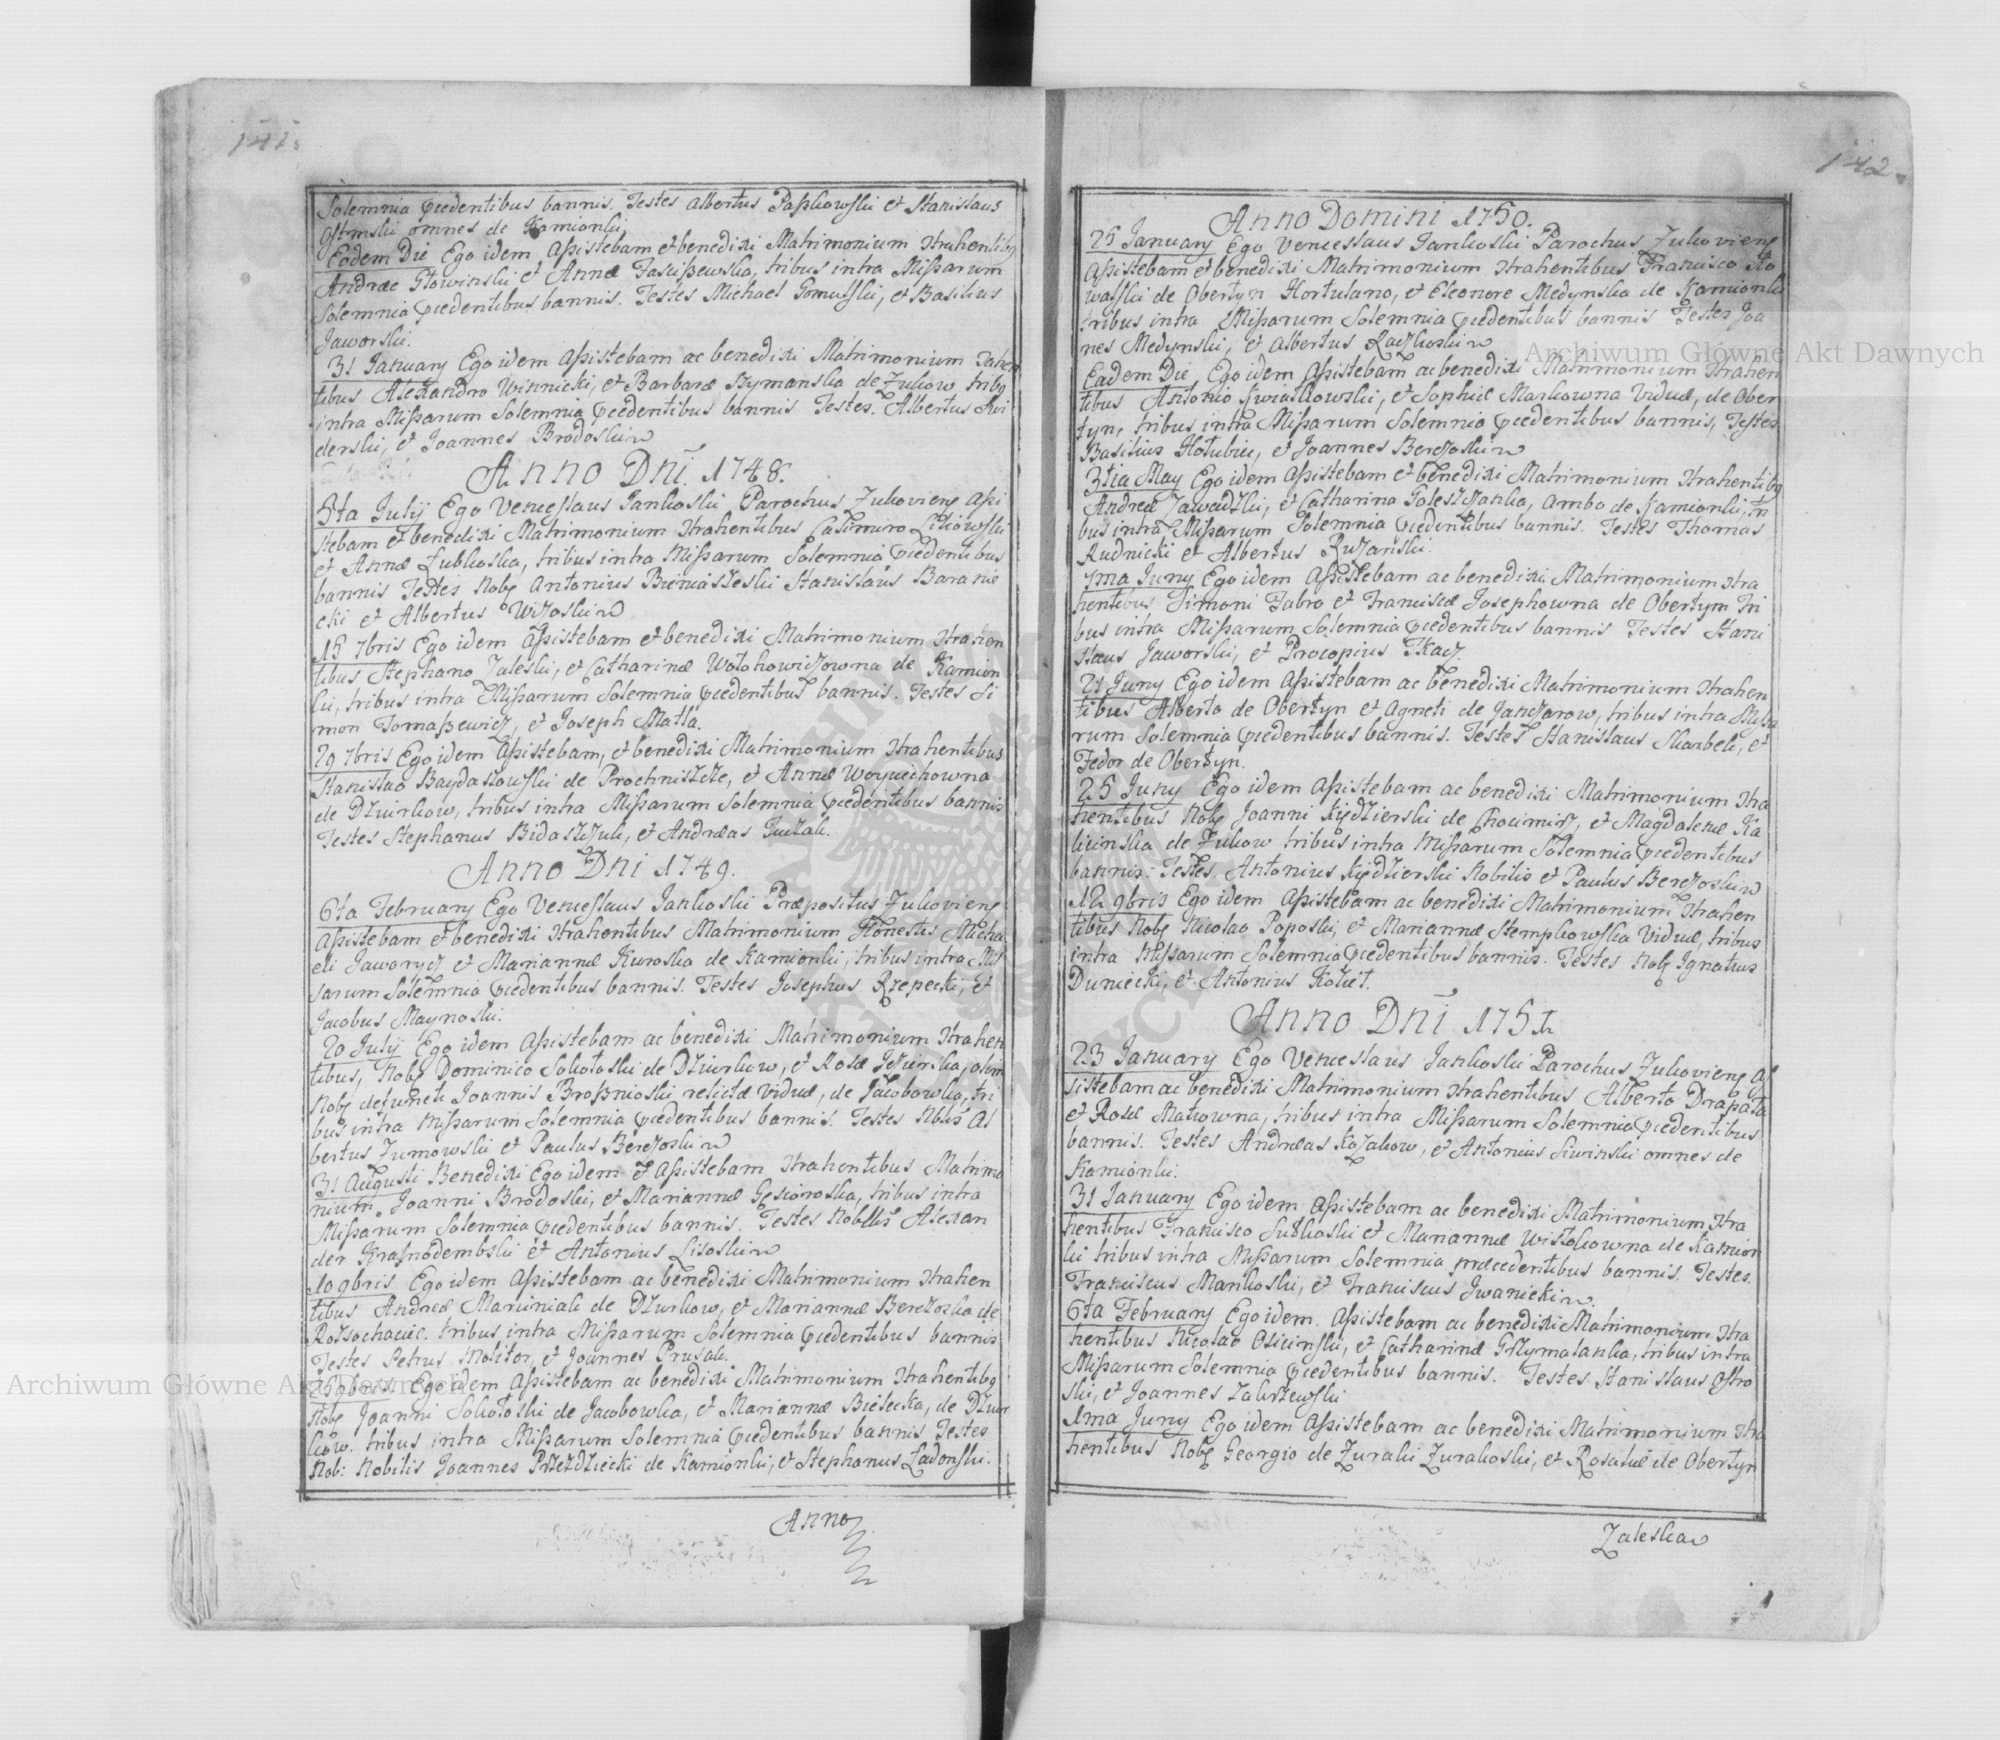 141.
Solemnia pcedentibus bannis. Testes Albertus Paszkowski et Stanislaus
omnes de Kamionki.
Eodem Die Ego idem Assistebam et benedixi Matrimonium Ctrahentibg
Andrae Głowinski et Annæ Jasciszewska, tribus intra Missarum
Solemnia pcedentibus bannis. Testes Michael Gomulski, et Basilius
Jaworski.
31 January Ego idem Assistebam ac benedixi Matrimonium
tibus Alexandro Winnicki, et Barbaræ Szymanska de Zukow tribg
intra Missarum Solemnia pcedentibus bannis Testes. Albertus Swi
derski, et Joannes Brodoski
Anno Dni. 1748.
5ta Julij Ego Venceslaus Jankoski Parochus Zukovieng Assi
stebam et benedixi Matrimonium Ctrahentibus Casimiro
et Annæ Łubkoska, tribus intra Missarum Solemnia pcedentibus
bannis Testes Nobg Antonius Stanislaus Baranie
cki et Albertus Wizoski
15 7bris Ego idem Assistebam et benedixi Matrimonium Ctrahen
tibus Stephano Zaleski, et Catharinæ Wołohowiczowna de Kamion
ki, tribus intra Missarum Solemnia pcedentibus bannis. Testes Si
mon Tomaszewicz, et Joseph Matla.
29 7bris Ego idem Assistebam, et benedixi Matrimonium Ctrahentibus
Stanislao de Prochniszcze, et Annæ Woyciechowna
de Dzwirkow, tribus intra Missarum Solemnia pcedentibus bannis
Testes Stephanus Bidaszczuk, et Andræas
Anno Dni 1749.
6ta February Ego Venceslaus Jankoski Præpositus Zukovieng
Assistebam et benedixi Ctrahentibus Matrimonium Honestis Micha
eli Jaworycz et Mariannæ Kuroska de Kamionki, tribus intra Mis
sarum Solemnia pcedentibus bannis. Testes Josephus Rzepecki, et
Jacobus Maynoski.
20 Julij Ego idem Assistebam ac benedixi Matrimonium Ctrahen
tibus, Nobg Dominico Sokołoski de Dzwirkow, et Rosæ Jezierska, olim
Nobg defuncti Joannis Brosznioski relictæ viduæ, de Jacobowka, tri
bus intra Missarum Solemnia pcedentibus bannis. Testes Nbles Al
bertus Zumowski et Paulus Berezoski
31 Augusti Benedixi Ego idem et Assistebam Ctrahentibus Matrimo
nium. Joanni Brodoski, et Mariannæ Gęsioroska, tribus intra
Missarum Solemnia pcedentibus bannis. Testes Nobiles Alexan
der Krasnodembski et Antonius Lisoski
10 9bris Ego idem Assistebam ac benedixi Matrimonium Ctrahen
tibus Andreæ Marciniak de Dzurkow, et Mariannæ Berezoska de
tribus intra Missarum Solemnia pcedentibus bannis
Testes Petrus Molitor, et Joannes Prusak.
25 9bris. Ego idem Assistebam ac benedixi Matrimonium Ctrahentibg
Nobg Joanni Sokołoski de Jacobowka, et Mariannæ Bielecka, de Dzwir
kow. tribus intra Missarum Solemnia pcedentibus bannis Testes
Nob: Nobilis Joannes Przezdziecki de Kamionki, et Stephanus Zadonski.
Anno
142.
Anno Domini 1750.
25 January Ego Venceslaus Jankoski Parochus Zukovieng
Assistebam et benedixi Matrimonium Ctrahentibus Francisco Ko
walski de Obertyn Hortulano, et Eleonoræ Medynska de Kamionki
tribus intra Missarum Solemnia pcedentibus bannis Testes Joa
nes Medynski, et Albertus Raczkoski
Eadem Die Ego idem Assistebam ac benedixi Matrimonium Ctrahen
tibus Antonio Kwiatkowski, et Sophiæ Markowna Viduæ, de Ober
tyn, tribus intra Missarum Solemnia pcedentibus bannis, Testes
Basilius Hołubiec, et Joannes Berezoski
3tia May Ego idem Assistebam et benedixi Matrimonium Ctrahentibg
Andreæ Zawadzki, et Catharina ambo de Kamionki, tri
bus intra Missarum Solemnia pcedentibus bannis. Testes Thomas
Rudnicki et Albertus Ruzanski.
7ma Juny Ego idem Assistebam ac benedixi Matrimonium Ctra
hentibus Simoni Fabro et Franciscæ Josephowna de Obertyn Tri
bus intra Missarum Solemnia pcedentibus bannis Testes Stani
slaus Jaworski, et Procopius Tkacz.
21 Juny Ego idem Assistebam ac benedixi Matrimonium Ctrahen
tibus Alberto de Obertyn et Agneti de Janczarow, tribus intra Missa
rum Solemnia pcedentibus bannis. Testes Stanislaus Skarbek, et
Fedor de Obertyn.
25 Juny Ego idem Assistebam ac benedixi Matrimonium Ctra
hentibus Nobg Joanni Kędzierski de Chocimirz, et Magdalenæ Ka
licinska de Zukow tribus intra Missarum Solemnia pcedentibus
bannis. Testes, Antonius Kędzierski Nobilis et Paulus Berezoski
12 9bris Ego idem Assistebam ac benedixi Matrimonium Ctrahen
tibus Nobg Nicolao Poposki, et Mariannæ Stempkowska Viduæ, tribus
intra Missarum Solemnia pcedentibus bannis. Testes Nobg Ignatius
Duniecki, et Antonius Koziet.
Anno Dni 1751.
23 January Ego Venceslaus Jankoski Parochus Zukovieng As
sistebam ac benedixi Matrimonium Ctrahentibus Alberto Drapata
et Rosæ Matkowna, tribus intra Missarum Solemnia pcedentibus
bannis. Testes Andræas Kozakow, et Antonius Siwinski omnes de
Kamionki.
31 January Ego idem Assistebam ac benedixi Matrimonium Ctra
hentibus Francisco et Mariannæ Wistockowna de Kamion
ki tribus intra Missarum Solemnia præcedentibus bannis. Testes.
Franciscus Mankoski, et Franciscus Iwanicki.
6ta February Ego idem. Assistebam ac benedixi Matrimonium Ctra
hentibus Nicolao Osicinski, et Catharinæ Grzymalanka, tribus intra
Missarum Solemnia pcedentibus bannis. Testes Stanislaus Ostro
ski, et Joannes Zakrzewski
1ma Juny Ego idem Assistebam ac benedixi Matrimonium Ctra
hentibus Nobg Georgio de Zuraki Zurakoski, et Rosaliæ de Obertyn
Zaleska
Archiwum Główne Akt Dawnych
Archiwum Główne Akt Dawnych